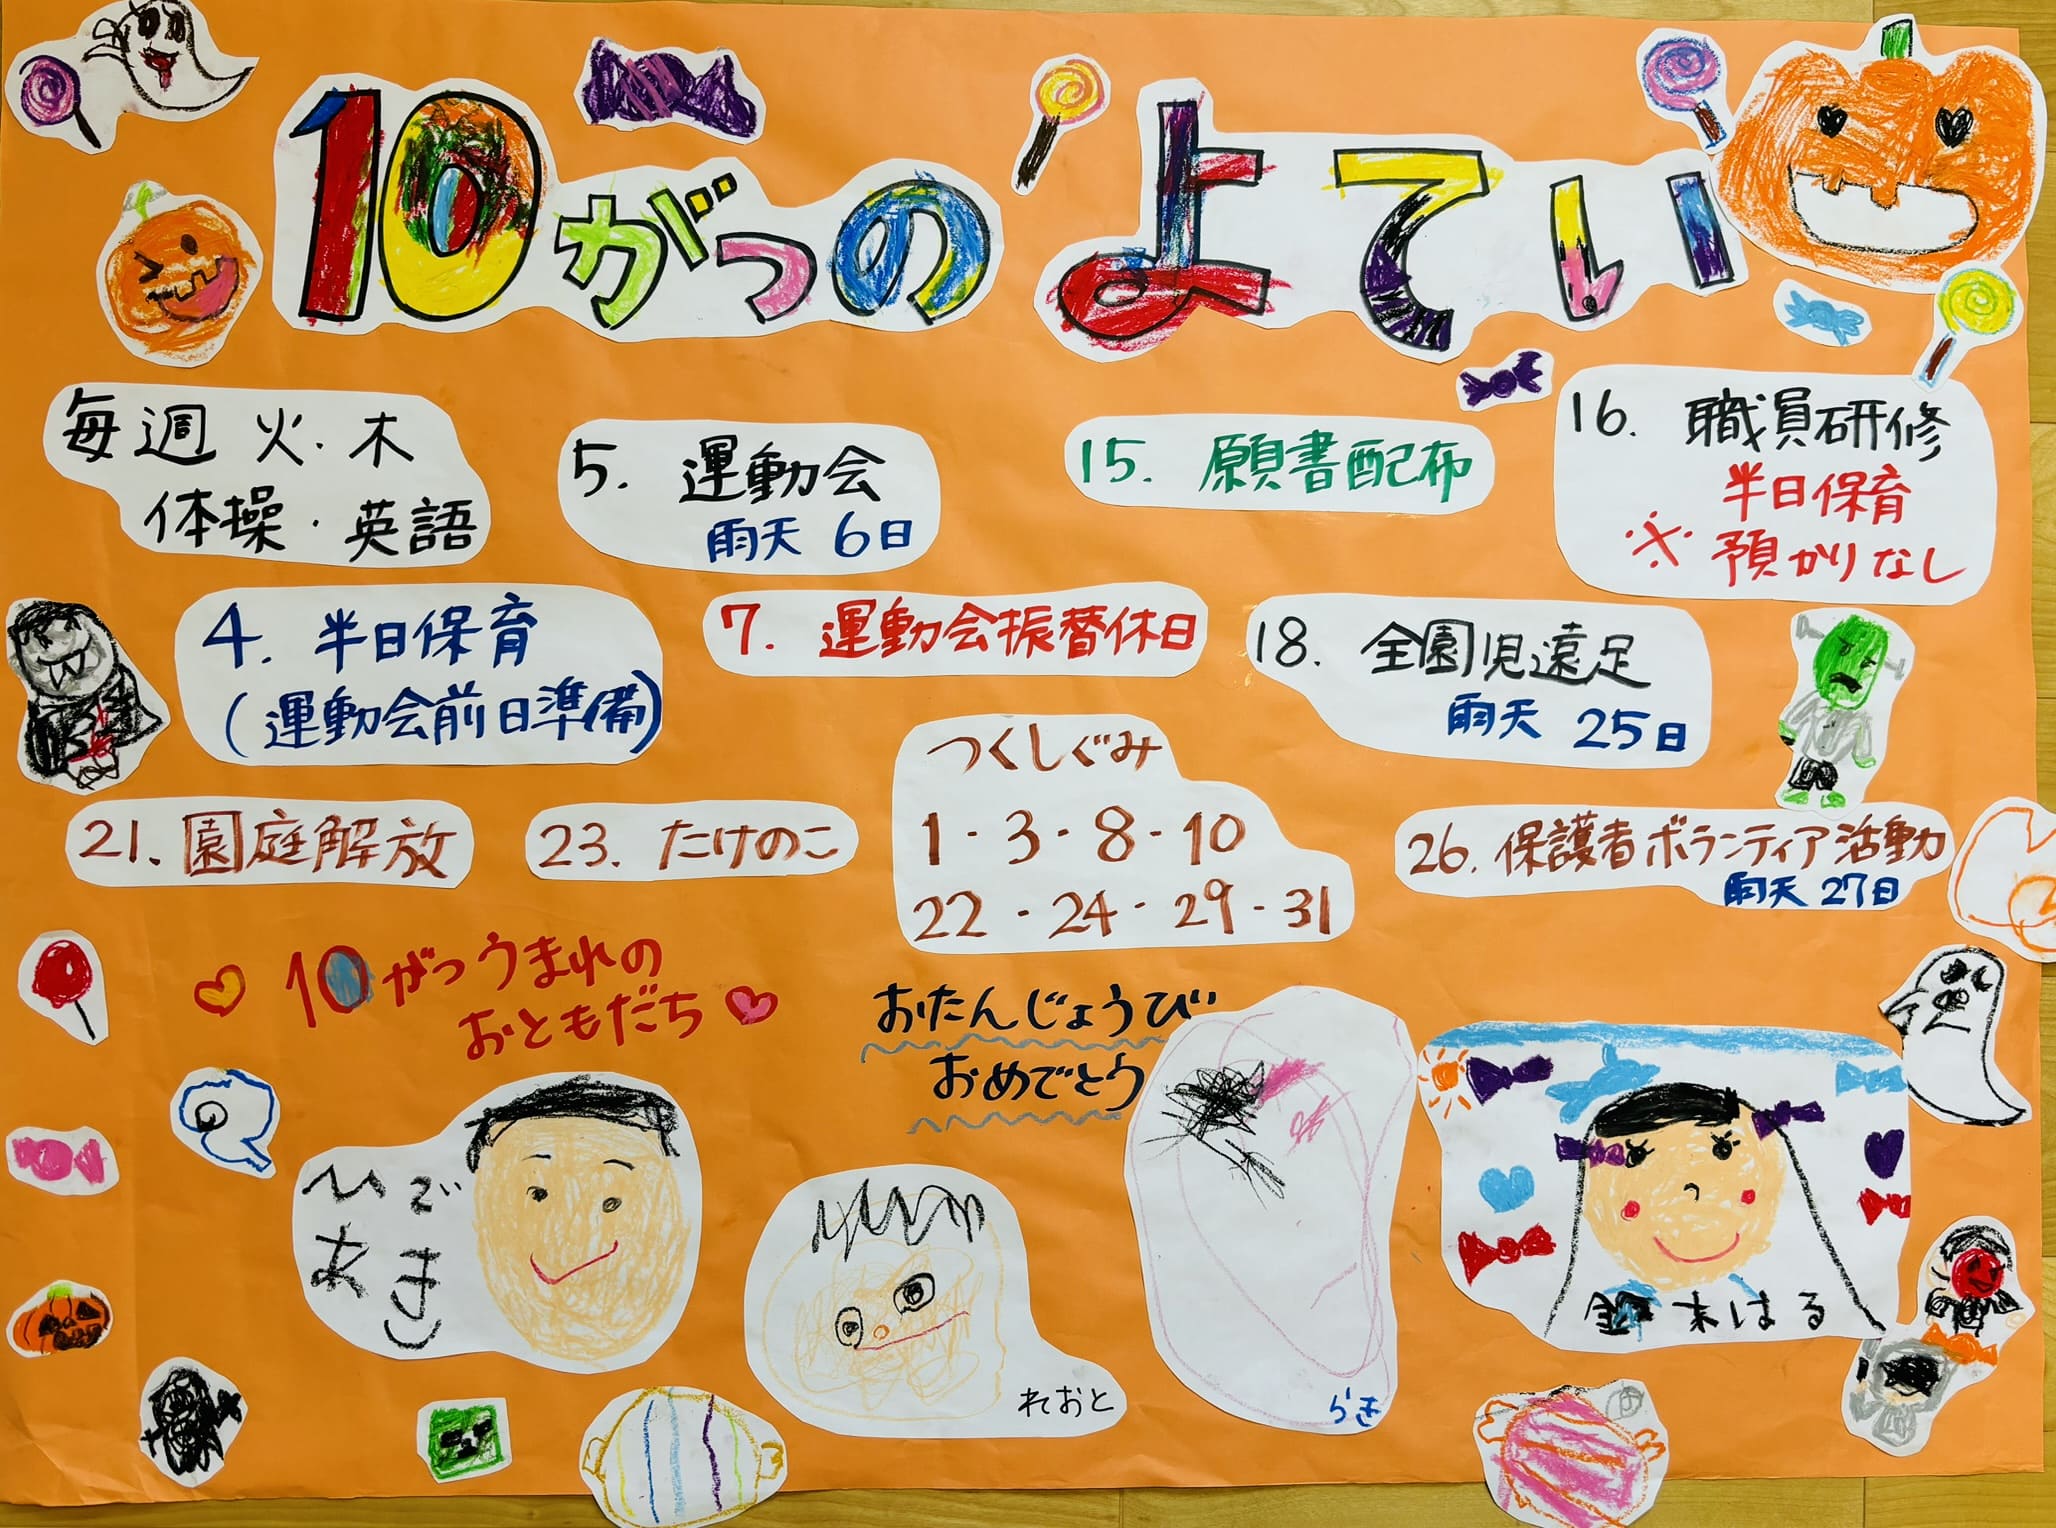 10がつの よてい
毎週 火・木
体操・英語
5. 運動会
雨天 6日
15. 願書配布
16. 職員研修
半日保育
※ 預かりなし
4. 半日保育
(運動会前日準備)
7. 運動会振替休日
18. 全園児遠足
雨天 25日
つくしぐみ
1・3・8・10
22・24・29・31
21. 園庭解放
23. たけのこ
26. 保護者ボランティア活動
雨天 27日
10がつうまれの
おともだち
おたんじょうび
おめでとう
ひで
あき
れおと
らき
木はる